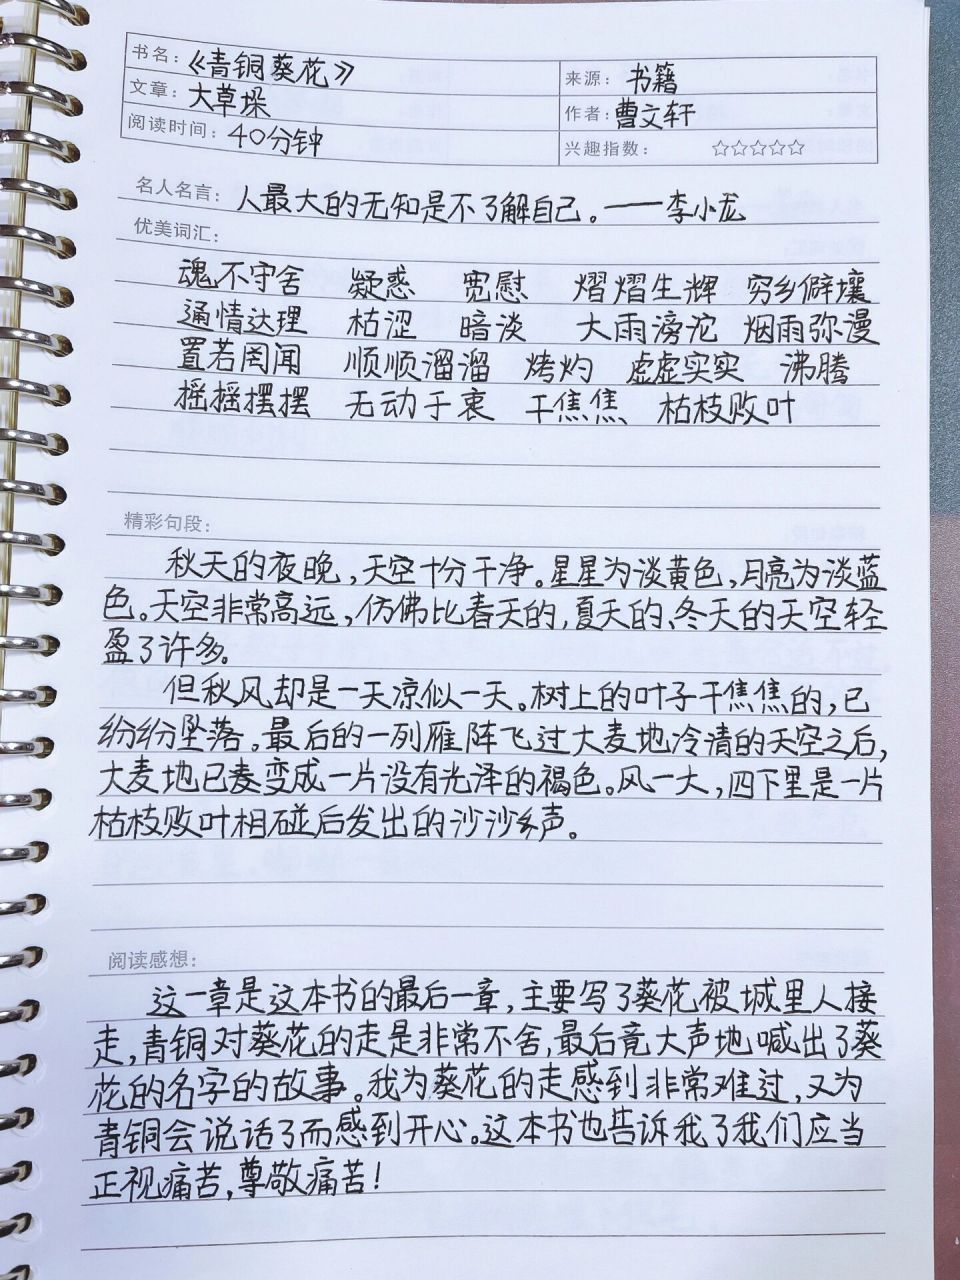 书名：《青铜葵花》 来源：书籍
文章：大草垛 作者：曹文轩
阅读时间：40分钟 兴趣指数：☆☆☆☆☆
名人名言：人最大的无知是不了解自己。——李小龙
优美词汇：
魂不守舍 疑惑 宽慰 熠熠生辉 穷乡僻壤
通情达理 枯涩 暗淡 大雨滂沱 烟雨弥漫
置若罔闻 顺顺溜溜 烤灼 虚虚实实 沸腾
摇摇摆摆 无动于衷 干焦焦 枯枝败叶
精彩句段：
秋天的夜晚，天空十分干净。星星为淡黄色，月亮为淡蓝
色。天空非常高远，仿佛比春天的，夏天的、冬天的天空轻
盈了许多。
但秋风却是一天凉似一天。树上的叶子干焦焦的，已
纷纷坠落。最后的一列雁阵飞过大麦地冷清的天空之后，
大麦地已变成一片没有光泽的褐色。风一大，四下里是一片
枯枝败叶相碰后发出的沙沙声。
阅读感想：
这一章是这本书的最后一章，主要写了葵花被城里人接
走，青铜对葵花的走是非常不舍，最后竟大声地喊出了葵
花的名字的故事。我为葵花的走感到非常难过，又为
青铜会说话了而感到开心。这本书也告诉我了我们应当
正视痛苦，尊敬痛苦！